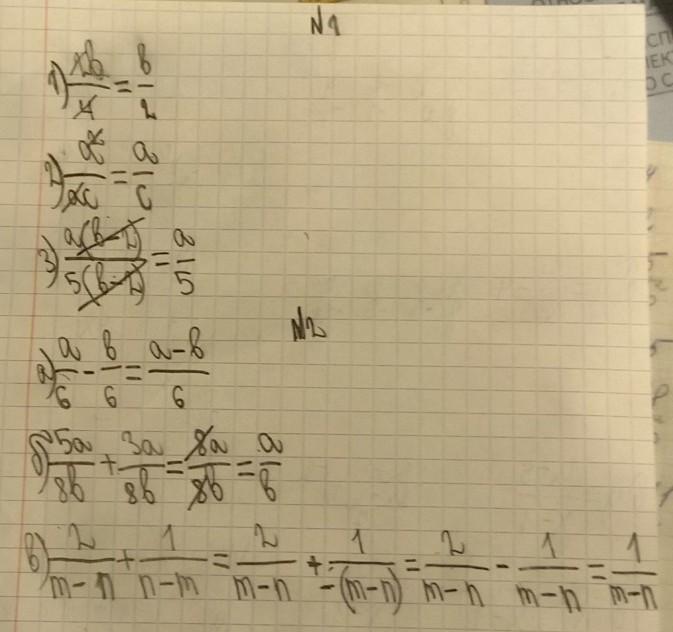 N1
1) 2b/4 = b/2
2) a²/ac = a/c
3) a(b-2)/5(b-2) = a/5
N2
а) a/6 - b/6 = a-b/6
б) 5a/8b + 3a/8b = 8a/8b = a/b
в) 2/m-n + 1/n-m = 2/m-n + 1/-(m-n) = 2/m-n - 1/m-n = 1/m-n